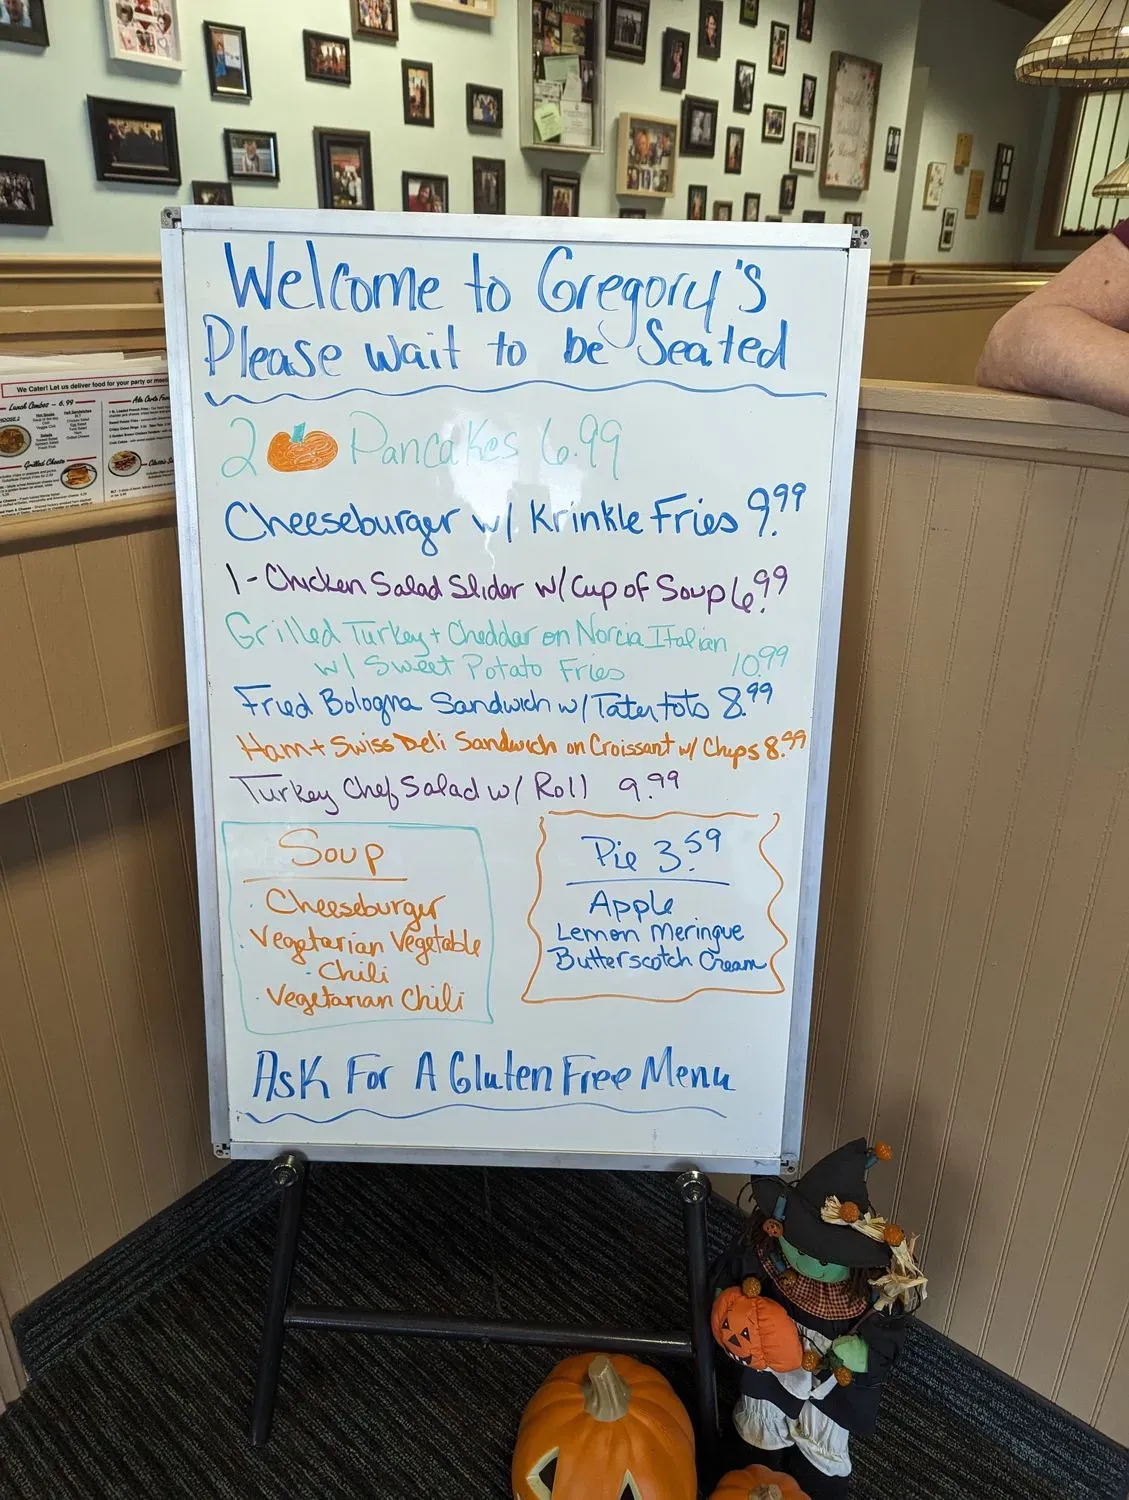 Welcome to Gregory's
Please wait to be Seated
2 Pancakes 6.99
Cheeseburger w/ Krinkle Fries 9.99
1 - Chicken Salad Slider w/ Cup of Soup 6.99
Grilled Turkey + Cheddar on Norcia Italian
w/ Sweet Potato Fries 10.99
Fried Bologna Sandwich w/ Tater tots 8.99
Ham + Swiss Deli Sandwich on Croissant w/ Chips 8.99
Turkey Chef Salad w/ Roll 9.99
Soup
· Cheeseburger
· Vegetarian Vegetable
· Chili
· Vegetarian Chili
Pie 3.59
Apple
Lemon Meringue
Butterscotch Cream
Ask For A Gluten Free Menu
We Cater! Let us deliver food for your party or
Lunch Combos - 6.99
Grilled Cheese